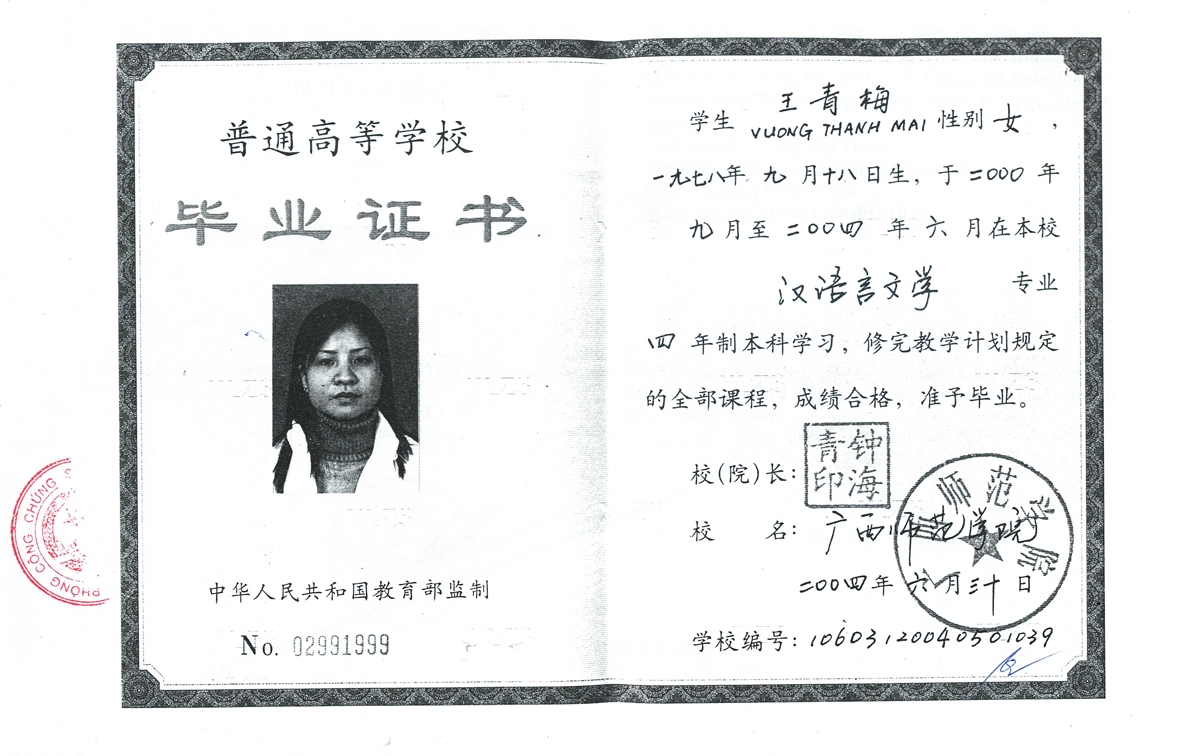 普通高等学校
毕业证书
中华人民共和国教育部监制
No. 02991999
PHÒNG CÔNG CHỨNG S
学生 王青梅 性别 女，
VUONG THANH MAI
一九七八年 九 月十八日生，于二000 年
九 月至 二00四 年 六 月在本校
汉语言文学 专业
四 年制本科学习，修完教学计划规定
的全部课程，成绩合格，准予毕业。
校(院)长：
钟海青印
校 名：广西师范学院
师范学院
二00四年 六 月三十日
学校编号：10603120040501039